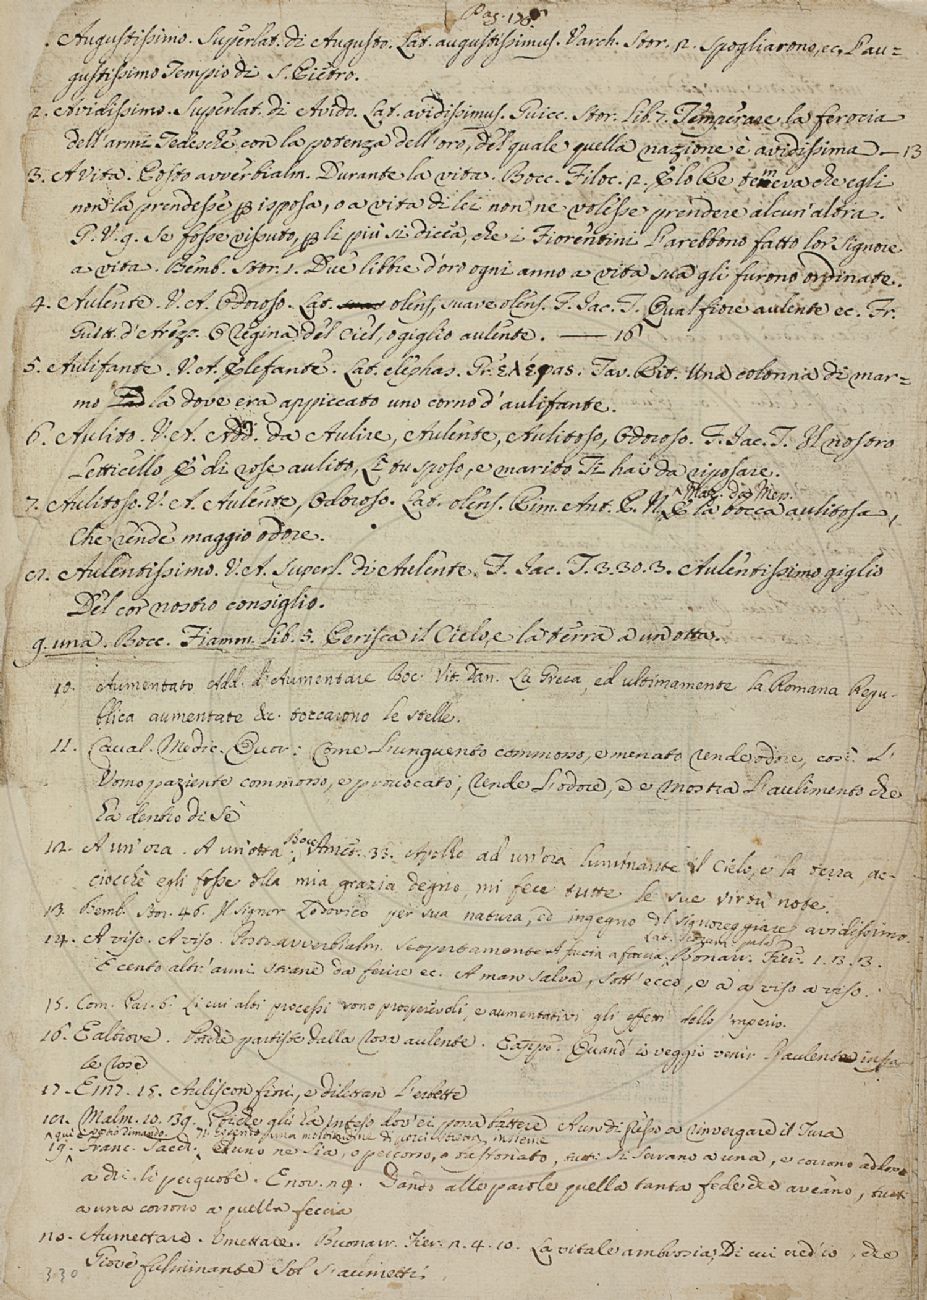 P. 35. 176
. Augustissimo. Superlat. di Augusto. Lat. augustissimus. Varch. Stor. 2. Spogliarono, ec. l'au=
gustissimo Tempio di S. Pietro.
2. Avidissimo. Superlat. di Avido. Lat. avidissimus. Guicc. Stor. Lib. 7. Temperare la ferocia
dell'armi Tedesche con la potenza dell'oro, del quale quella nazione è avidissima — 13
3. A vita. Posto avverbialm. Durante la vita. Bocc. Filoc. 2. E lo Re temeva che egli
non la prendesse p isposa, o a vita di lei non ne volesse prendere alcun'altra.
G. V. 9. Se fosse vissuto, p li più si dicea, che i Fiorentini l'arebbono fatto lor Signore
a vita. Bemb. Stor. 1. Due libbre d'oro ogni anno a vita sua gli furono ordinate.
4. Aulente. V. A. Odoroso. Lat. olens, suave olens. F. Jac. T. Qual fiore aulente ec. Fr.
Guitt. d'Arezz. O Regina del Ciel, o giglio aulente. — 16
5. Aulifante. V. A. Elefante. Lat. elephas. Gr. ελέφας. Tav. Rit. Una colonna di mar=
mo la dove era appiccato uno corno d'aulifante.
6. Aulito. V. A. Add. da Aulire, Aulente, Aulitoso, Odoroso. F. Jac. T. Il nostro
Letticello E' di rose aulito, E tu sposo, e marito Ti hai da riposare.
7. Aulitoso. V. A. Aulente, Odoroso. Lat. olens. Rim. Ant. P. N. Maz. da Mes. E la bocca aulitosa,
Che rende maggio odore.
8. Aulentissimo. V. A. Superl. di Aulente. F. Jac. T. 3. 30. 3. Aulentissimo giglio
Del cor nostro consiglio.
9. una. Bocc. Fiamm. Lib. 5. Perisca il Cielo, e la terra a un'otta.
10. Aumentato Add. d'Aumentare Boc. Vit. Dan. La Greca, ed ultimamente la Romana Repu-
blica aumentate &c. toccarono le stelle.
11. Caval. Medic. Cuor: Come l'unguento commosso, e menato rende odore, così l'
Uomo paziente commosso, e provocato, rende l'odore, e mostra l'aulimento che
ha dentro di sè
12. A un'ora. A un'otta. Bocc. Amet. 33. Apollo ad un'ora luminante il Cielo, e la terra, ac-
ciocchè egli fosse della mia grazia degno, mi fece tutte le sue virtù note.
13. Bemb. Stor. 46. Il Signor Lodovico per sua natura, ed ingegno del signoreggiare avidissimo.
14. A viso. A viso. Posto avverbialm. Scopertamente A faccia a faccia. Lat. palo Bonar. Fier. 1. 3. 3.
E cento altr'armi strane da ferire ec. A man salva, sott'ecco, e a viso a viso.
15. Com. Par. 6. Li cui alti processi sono prosperevoli, e aumentativi gli effetti dello 'mperio.
16. E altrove. Perchè partiste dalla rosa aulente. E appo: Quand'io veggio venir l'aulente infra
le rose
17. E 117. 18. Auliscon fiori, e dilettan l'erbette
18. Malm. 10. 139. Perchè gli ha inteso dov'ei possa battere Aun di presso a rinvergare il Tura
qui è verbo rimando. Il secento una moltitudine di porci, insieme
19. Franc. Sacch. Se uno ne sia, o percosso, o bastonato, tutti si serrano a una, e corrono addosso
a chi li percuote. E nov. 119. Dando alle parole quella tanta fede che aveano, tutti
a una corrono a quella feccia
20. Aumettare. Umettare. Buonarr. Fier. 2. 4. 10. La vitale ambrosia, Di cui credio, che
Giove fulminante Sol s'aumetti.
330